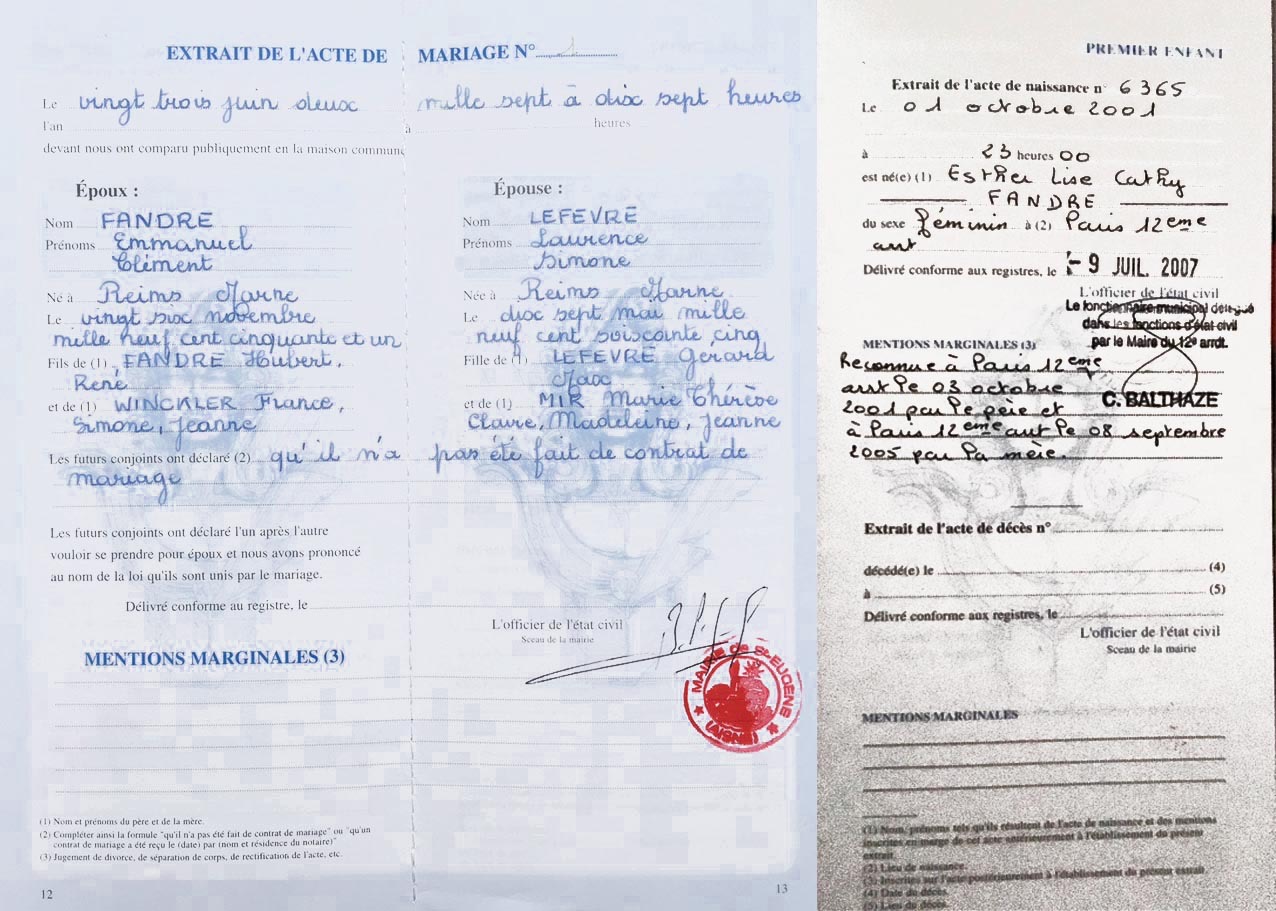 EXTRAIT DE L'ACTE DE MARIAGE N° 1
Le vingt trois juin deux mille sept à dix sept heures
l'an à heures
devant nous ont comparu publiquement en la maison commune
Époux :
Nom FANDRE
Prénoms Emmanuel
Clément
Né à Reims Marne
Le vingt six novembre
mille neuf cent cinquante et un
Fils de (1) FANDRE Hubert,
René
et de (1) WINCKLER France,
Simone, Jeanne
Épouse :
Nom LEFEVRE
Prénoms Laurence
Simone
Née à Reims Marne
Le dix sept mai mille
neuf cent soiscointe cinq
Fille de (1) LEFEVRE Gerard
Max
et de (1) MIR Marie Thérèse
Claire, Madeleine, Jeanne
Les futurs conjoints ont déclaré (2) qu'il n'a pas été fait de contrat de
mariage
Les futurs conjoints ont déclaré l'un après l'autre
vouloir se prendre pour époux et nous avons prononcé
au nom de la loi qu'ils sont unis par le mariage.
Délivré conforme au registre, le
L'officier de l'état civil
Sceau de la mairie
MAIRIE de St-EUGÈNE
(AISNE)
MENTIONS MARGINALES (3)
(1) Nom et prénoms du père et de la mère.
(2) Compléter ainsi la formule "qu'il n'a pas été fait de contrat de mariage" ou "qu'un
contrat de mariage a été reçu le (date) par (nom et résidence du notaire)"
(3) Jugement de divorce, de séparation de corps, de rectification de l'acte, etc.
12
13
PREMIER ENFANT
Extrait de l'acte de naissance n° 6365
Le 01 octobre 2001
à 23 heures 00
est né(e) (1) Esther Lise Cathy
FANDRE
du sexe féminin à (2) Paris 12eme
arrt
Délivré conforme aux registres, le - 9 JUIL. 2007
L'officier de l'état civil
Le fonctionnaire municipal délégué
dans les fonctions d'état civil
par le Maire du 12e arrdt.
C. BALTHAZE
MENTIONS MARGINALES (3)
Reconnue à Paris 12eme
arrt le 03 octobre
2001 par le père et
à Paris 12eme arrt le 08 septembre
2005 par la mère.
Extrait de l'acte de décès n°
décédé(e) le (4)
à (5)
Délivré conforme aux registres, le
L'officier de l'état civil
Sceau de la mairie
MENTIONS MARGINALES
(1) Nom, prénoms tels qu'ils résultent de l'acte de naissance et des mentions
inscrites en marge de cet acte antérieurement à l'établissement du présent
extrait.
(2) Lieu de naissance.
(3) Inscrites sur l'acte postérieurement à l'établissement du présent extrait.
(4) Date du décès.
(5) Lieu du décès.